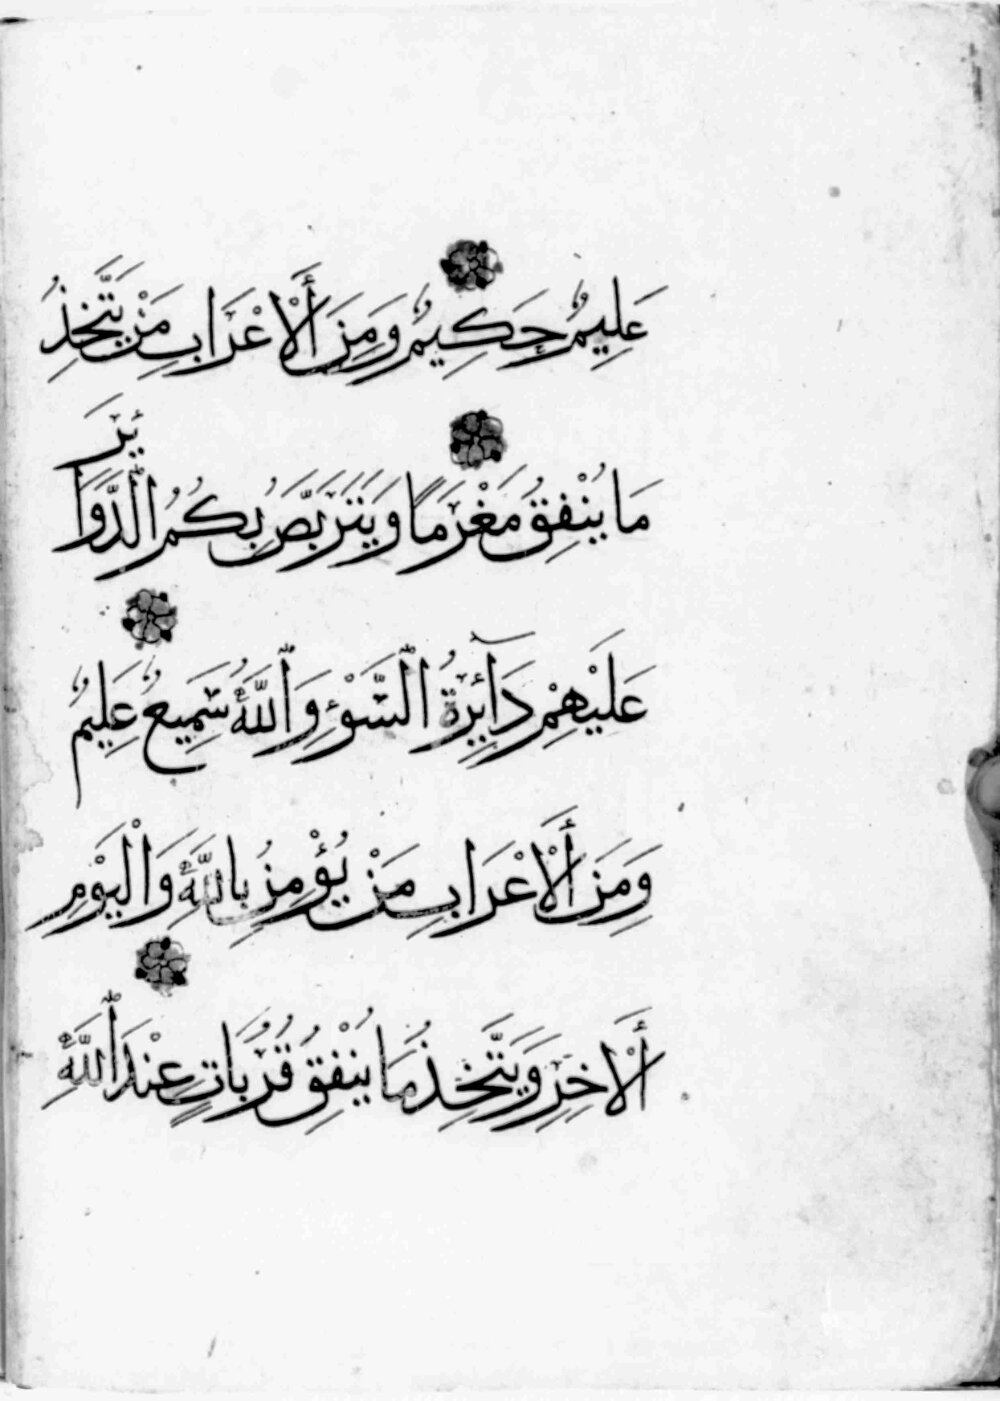 عَلِيمٌ حَكِيمٌ وَمِنَ ٱلْأَعْرَابِ مَنْ يَتَّخِذُ
مَا يُنْفِقُ مَغْرَمًا وَيَتَرَبَّصُ بِكُمُ ٱلدَّوَائِرَ
عَلَيْهِمْ دَآئِرَةُ ٱلسَّوْءِ وَٱللَّهُ سَمِيعٌ عَلِيمٌ
وَمِنَ ٱلْأَعْرَابِ مَنْ يُؤْمِنُ بِاللَّهِ وَالْيَوْمِ
ٱلْأَخِرِ وَيَتَّخِذُ مَا يُنْفِقُ قُرُبَاتٍ عِنْدَ ٱللَّهِ